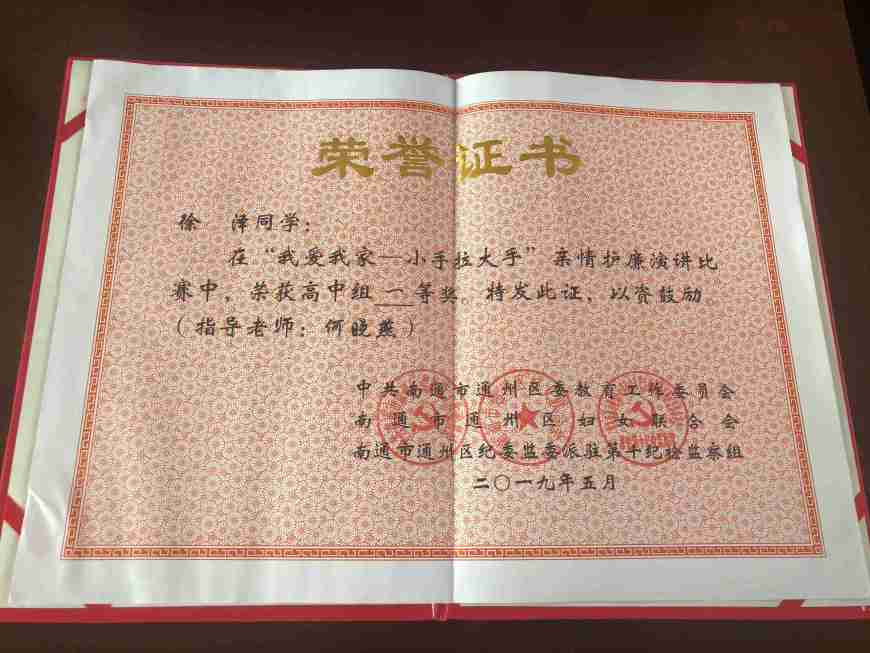 荣誉证书
徐 泽同学：
在“我爱我家—小手拉大手”亲情护廉演讲比
赛中，荣获高中组一等奖。特发此证，以资鼓励
（指导老师：何晓燕）
中共南通市通州区委教育工作委员会
南通市通州区妇女联合会
南通市通州区纪委监委派驻第十纪检监察组
二〇一九年五月